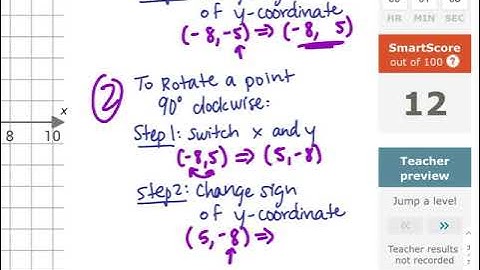 of y-coordinate
(-8,-5) ⇒ (-8, 5)
② To Rotate a point
90° clockwise:
Step 1: switch x and y
(-8,5) ⇒ (5,-8)
Step 2: Change sign
of y-coordinate
(5,-8) ⇒
x
8 10
HR MIN SEC
SmartScore
out of 100 ?
12
Teacher
preview
Jump a level!
Teacher results
not recorded